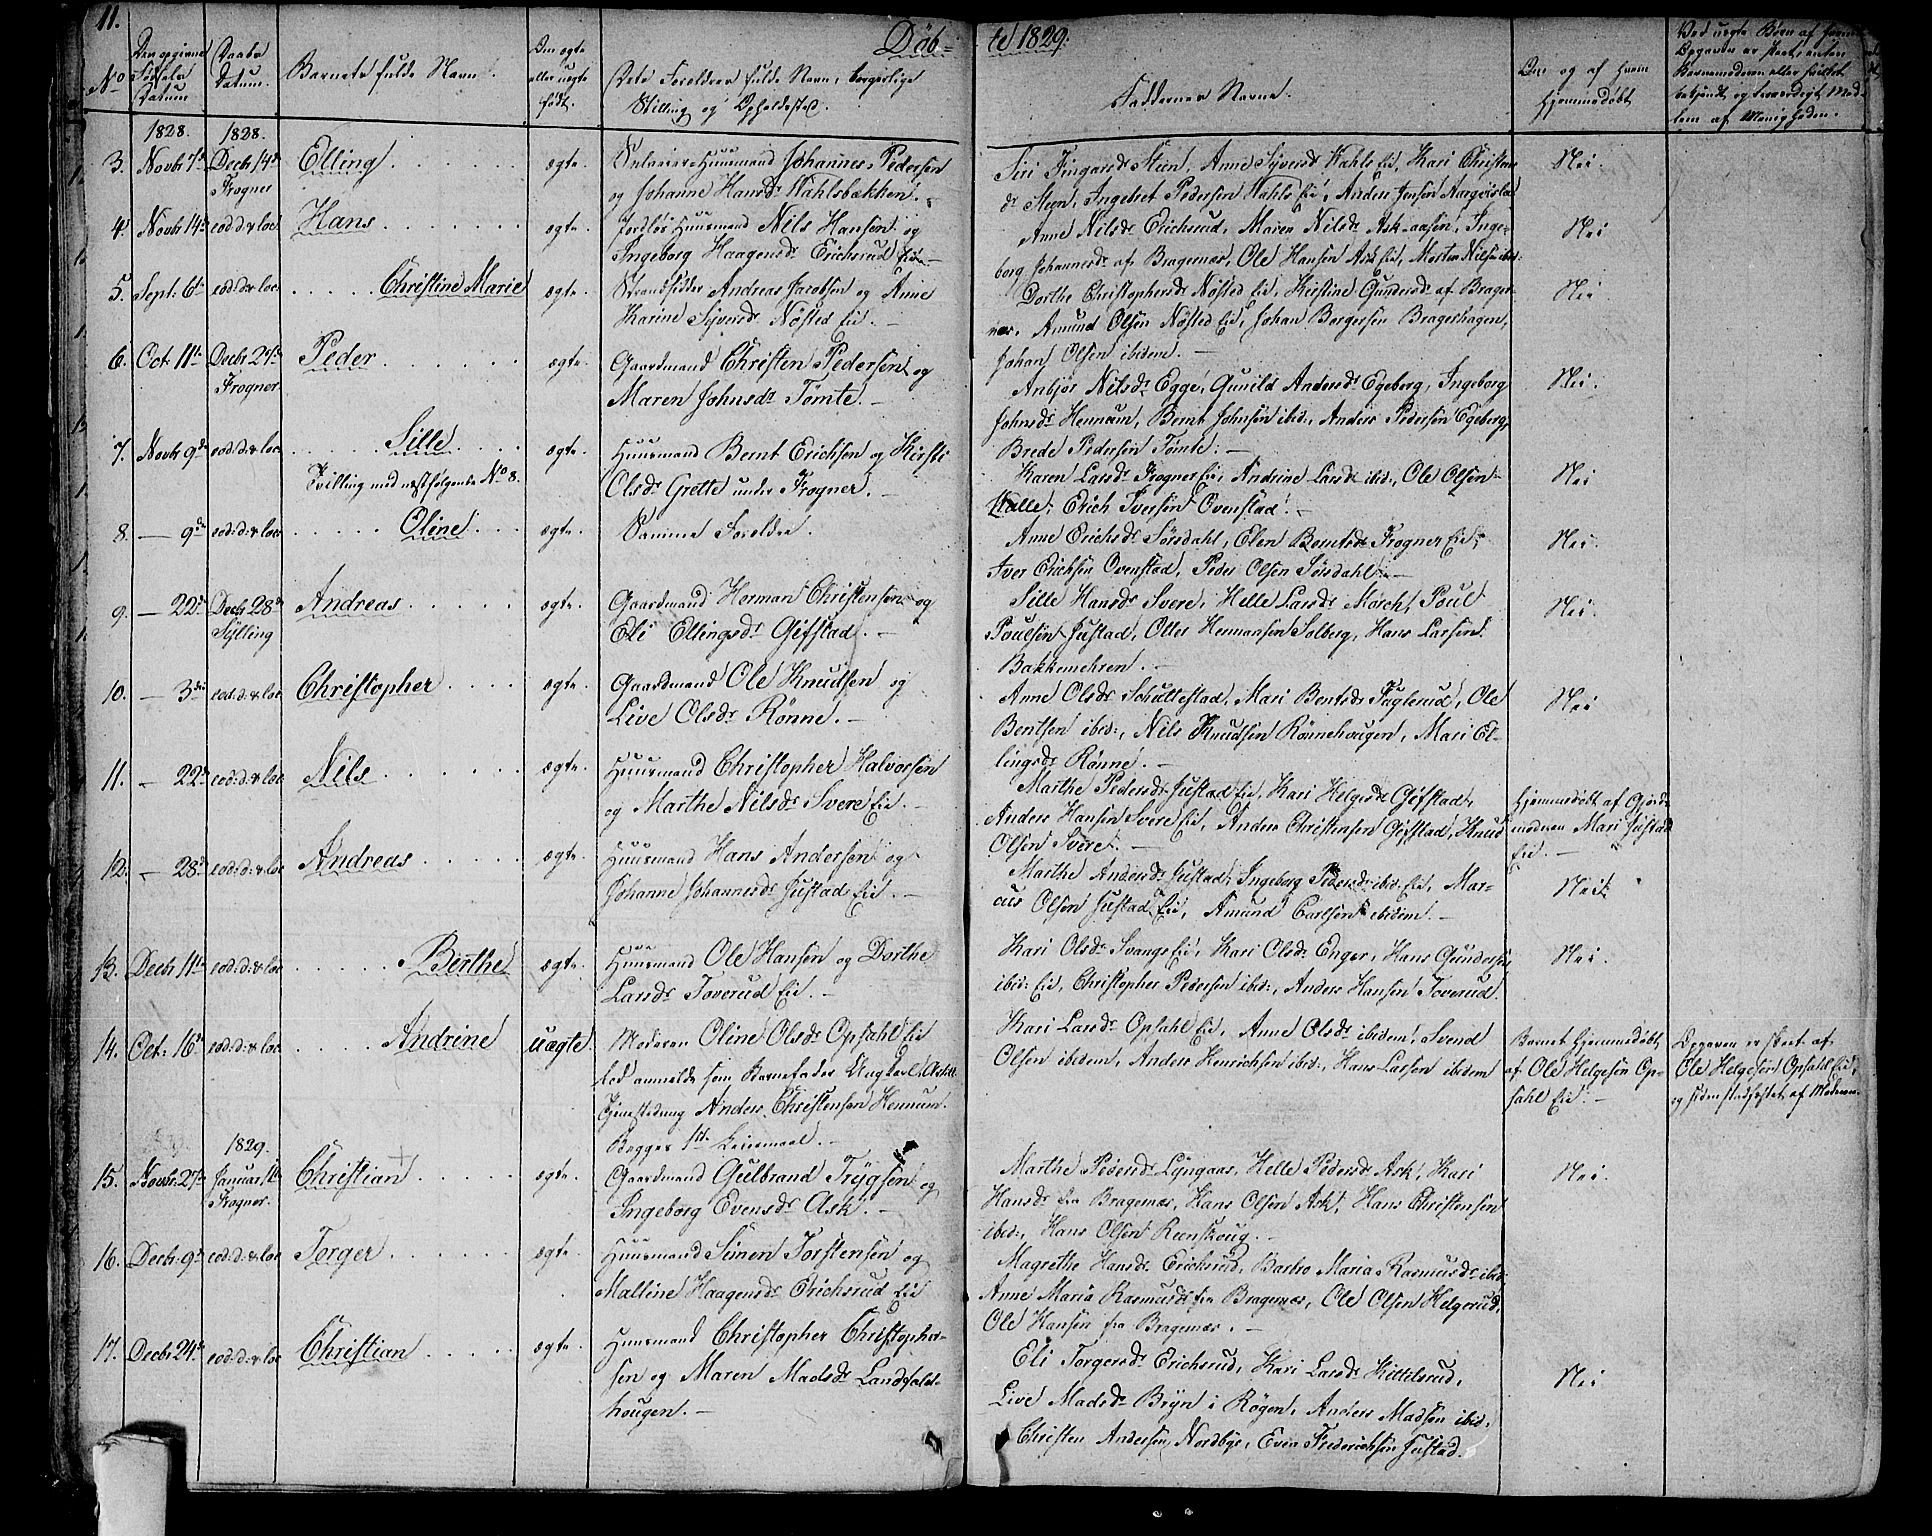 11.
Døb-
te 1829.
No
Den opgivne Fødsels Datum
Daabs Datum.
Barnets fulde Navn.
Den ægte eller uægte født.
Dets Forældres fulde Navn, borgerlige
Stilling og Opholdssted.
Faddernes Navne.
Om og af hvem
hjemmedøbt
Ved uægte Børn af hvem
Opgaven er skeet, enten
Barnemoderen eller hvilket
bekjendt og troværdigt Med-
lem af Menigheden.
1828. 1828.
3. Novbr 7de Decbr 14de Frogner Elling ægte.
Huusmand Johannes Pedersen
og Johanne Hansdr Wahlsbækken.
Siri Fingarsdr Steen, Anne Syversdr Wahls Eie, Kari Christens
dr Steen, Ingebret Pedersen Wahls Eie, Anders Jensen
Nei.
4. Novbr 14de eod: d: & loc Hans ægte.
Jordløs Huusmand Nils Hansen og
Ingeborg Haagensdr Erichsrud Eie.
Anne Nilsdr Erichsrud, Maren Nilsdr Ask-aasen, Inge-
borg Johannesdr af Bragernæs, Ole Hansen Ask Eie, Morten Nilsen ibid:
Nei
5. Septr 6te eod: d: & loc Christine Marie ægte.
Strandsidder Andreas Jacobsen og Anne
Karine Syversdr Nøsted Eie.
Dorthe Christophersdr Nøsted Eie, Kirstine Gundersdr af Brager-
næs, Amund Olsen Nøsted Eie, Johan Borgersen Bragerhagen,
Johan Olsen ibidem.
Nei.
6. Oct 11te Decbr 27de Frogner Peder ægte.
Gaardmand Christen Pedersen og
Maren Johnsdr Tømte.
Anbjør Nilsdr Egge, Gunild Andersdr Egeberg, Ingeborg
Johnsdr Hennum, Bernt Johnsen ibid:, Anders Pedersen Egeberg,
Brede Pedersen Tømte.
Nei.
7. Novbr 9de eod: d: & loc Sille ægte.
Tvilling med næstfølgende No 8.
Huusmand Bernt Erichsen og Kirsti
Olsdr Grette under Frogner.
Karen Larsdr Frogner Eie, Andrine Larsdr ibid:, Ole Olsen
Walle, Erich Iversen Ovenstad.
Nei
8. — 9de eod: d: & loc Oline ægte.
Samme Forældre.
Anne Erichsdr Sørsdahl, Elen Berntsdr Frogner Eie,
Iver Erichsen Ovenstad, Peder Olsen Sørsdahl.
Nei.
9. — 22de Decbr 28de Sylling Andreas ægte.
Gaardmand Herman Christensen og
Eli Ellingsdr Gifstad.
Sille Hansdr Svere, Helle Larsdr Mørch, Poul
Poulsen Justad, Oller Hermansen Solberg, Hans Larsen
Bakkemehren.
Nei.
10. — 3die eod: d: & loc Christopher ægte.
Gaardmand Ole Knudsen og
Live Olsdr Rønne.
Anne Olsdr Schullestad, Mari Bentsdr Fuglerud, Ole
Bentsen ibid:, Nils Knudsen Rønnehougen, Mari El-
lingsdr Rønne.
Nei
11. — 22de eod: d: & loc Nils ægte.
Huusmand Christopher Halvorsen
og Marthe Nilsdr Svere Eie.
Marthe Pedersdr Justad Eie, Kari Helgesdr Gifstad,
Anders Hansen Svere Eie, Anders Christensen Gifstad, Knud
Olsen Svere.
Hjemmedøbt af Gjord-
moderen Mari Justad
Eie.
12. — 28de eod: d: & loc Andreas ægte.
Huusmand Hans Andersen og
Johanne Johannesdr Justad Eie.
Marthe Andersdr Justad, Ingeborg Pedersdr ibid: Eie, Mar-
cus Olsen Justad Eie, Amund Carlsen ibidem.
Nei.
13. Decbr 11te eod: d: & loc Berthe ægte.
Huusmand Ole Hansen og Dorthe
Larsdr Toverud Eie.
Kari Olsdr Svangs Eie, Kari Olsdr Enger, Hans Gundersen
ibid: Eie, Christopher Pedersen ibid:, Anders Hansen Toverud.
Nei.
14. Oct: 16de eod: d: & loc Andrine uægte.
Moderen Oline Olsdr Opsahl Eie
lod anmelde som Barnefader Ungkarl, Artill.
Anders Christensen Hennum.
Begges 1ste Leiermaal.
Kari Larsdr Opsahl Eie, Anne Olsdr ibidem, Svend
Olsen ibidem, Anders Henrichsen ibid:, Hans Larsen ibidem
Barnet hjemmedøbt
af Ole Helgesen Op-
sahl Eie.
Opgaven er skeet af
Ole Helgesen Opsahl Eie,
og siden stadfæstet af Moderen.
1829.
15. Novbr 27de Januar 1ste Frogner. Christian ægte.
Gaardmand Gulbrand Trygsen og
Ingeborg Evensdr Ask.
Marthe Pedersdr Lyngaas, Helle Pedersdr Ask, Kari
Hansdr fra Bragernæs, Hans Olsen Ask, Hans Christensen
ibid:, Hans Olsen Reenskoug.
Nei.
16. Decbr 9de eod: d: & loc Torger ægte.
Huusmand Simen Torstensen og
Malline Haagensdr Erichsrud Eie
Magrethe Hansdr Erichsrud, Barbro Maria Rasmusdr ibid:
Anne Maria Rasmusdr fra Bragernæs, Ole Olsen Helgerud,
Ole Hansen fra Bragernæs.
17. Decbr 24de eod: d: & loc Christian ægte.
Huusmand Christopher Christopher-
sen og Maren Madsdr Landfald-
hougen.
Eli Torgersdr Erichsrud, Kari Larsdr Kittelsrud,
Live Madsdr Bryn i Røgen, Anders Madsen ibid:
Christen Andersen Nordbye, Even Frederichsen Justad.
Nei